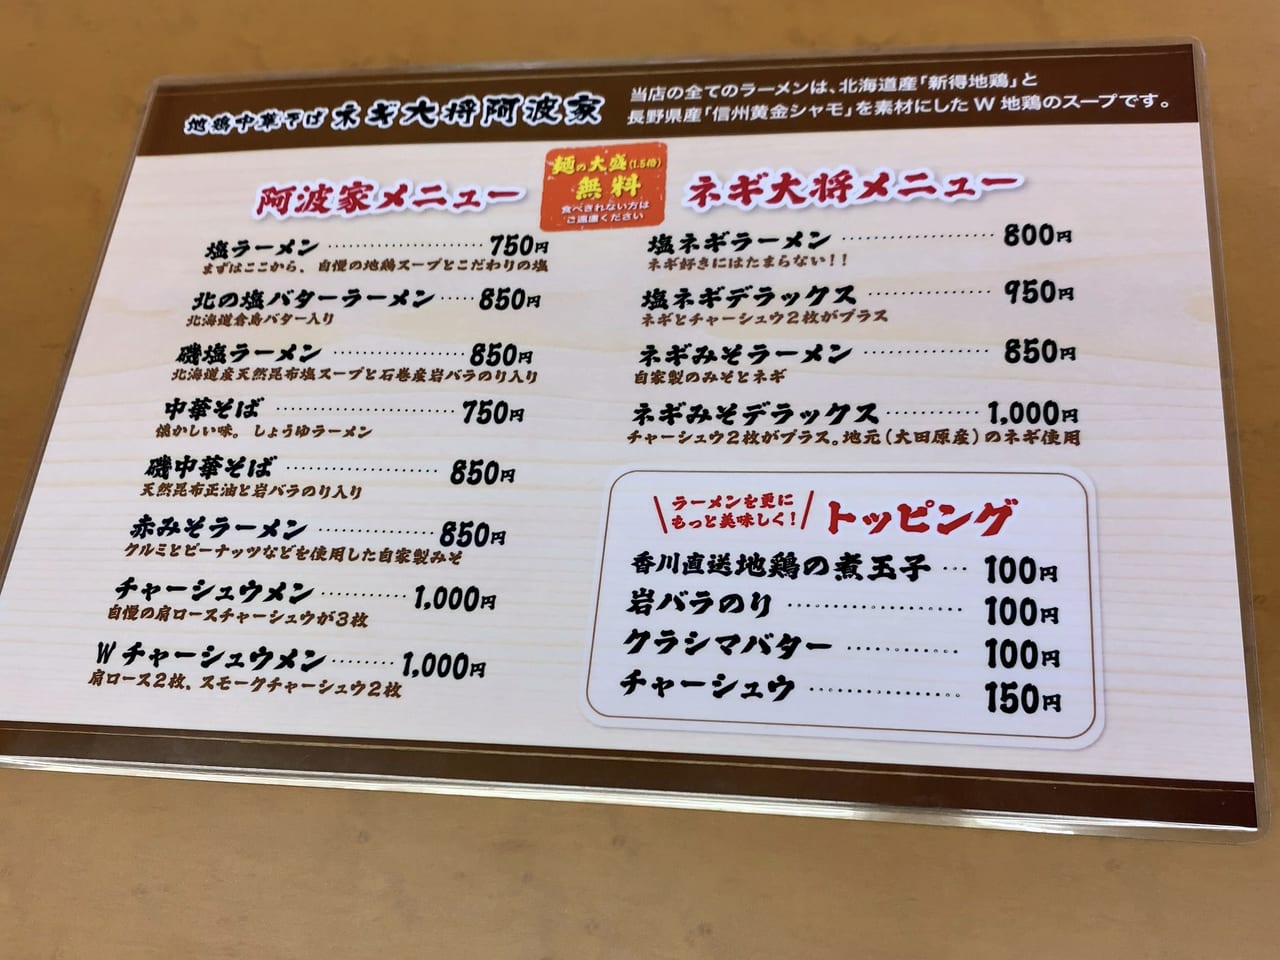 地鶏中華そば ネギ大将阿波家
当店の全てのラーメンは、北海道産「新得地鶏」と
長野県産「信州黄金シャモ」を素材にした W 地鶏のスープです。
麺の大盛(1.5倍)
無料
食べきれない方は
ご遠慮ください
阿波家メニュー
塩ラーメン 750円
まずはここから、自慢の地鶏スープとこだわりの塩
北の塩バターラーメン 850円
北海道倉島バター入り
磯塩ラーメン 850円
北海道産天然昆布塩スープと石巻産岩バラのり入り
中華そば 750円
懐かしい味。しょうゆラーメン
磯中華そば 850円
天然昆布正油と岩バラのり入り
赤みそラーメン 850円
クルミとピーナッツなどを使用した自家製みそ
チャーシュウメン 1,000円
自慢の肩ロースチャーシュウが3枚
W チャーシュウメン 1,000円
肩ロース2枚、スモークチャーシュウ2枚
ネギ大将メニュー
塩ネギラーメン 800円
ネギ好きにはたまらない!!
塩ネギデラックス 950円
ネギとチャーシュウ2枚がプラス
ネギみそラーメン 850円
自家製のみそとネギ
ネギみそデラックス 1,000円
チャーシュウ2枚がプラス。地元(大田原産)のネギ使用
ラーメンを更に
もっと美味しく!
トッピング
香川直送地鶏の煮玉子 100円
岩バラのり 100円
クラシマバター 100円
チャーシュウ 150円